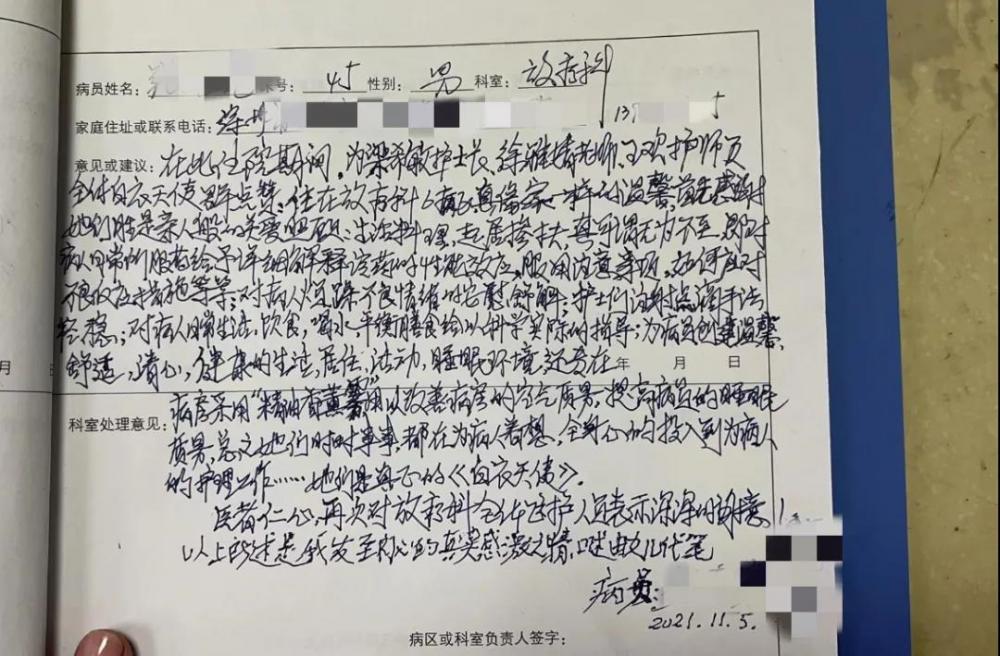 病员姓名： 床号：45 性别：男 科室：放疗科
家庭住址或联系电话： 13 5
意见或建议：在此住院期间，为梁 护士长、徐 老师、王欢护师及
全体白衣天使群点赞。住在放疗科 像家一样的温馨，首先感谢
她们胜是亲人般的关爱照顾：生活料理，起居搀扶真可谓无为不至，即对
病人日常的服药给予详细解释 药的性能效应，服用注意事项，如何应对
不良反应措施等等；对病人烦躁不良情绪的安慰舒解；护士们注射点滴手法
轻、稳；对病人日常生活、饮食，喝水、平衡膳食给以科学实际的指导；为病员创建温馨、
舒适，清心，健康的生活，居住，活动，睡眠环境，还
月 日 年 月 日
科室处理意见：病房采用“精油香薰 ”用以改善病房的空气质量，提高病员的睡眠
质量。总之她们时时事事，都在为病人着想，全身心的投入到为病人
的护理工作……她们是真正的《白衣天使》。
医者仁心，再次对放疗科全体医护人员表示深深的谢意！
以上所述是我发至内心的真实感激之情， 由女儿代笔
病员：
2021.11.5.
病区或科室负责人签字：